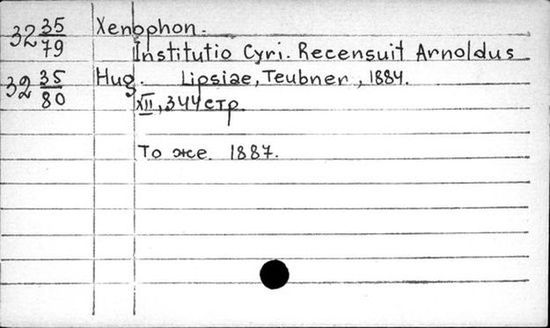 32 35/79 Xenophon.
Institutio Cyri. Recensuit Arnoldus
32 35/80 Hug. Lipsiae, Teubner, 1884.
XII, 344 стр.
То же. 1887.